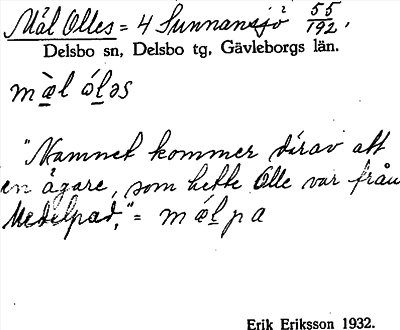 Mål Olles = 4 Sunnansjö² 55/192.
Delsbo sn, Delsbo tg, Gävleborgs län.
mæ̀l óləs
"Namnet kommer därav att
en ägare, som hette Olle var från
Medelpad," = mǽlpa
Erik Eriksson 1932.